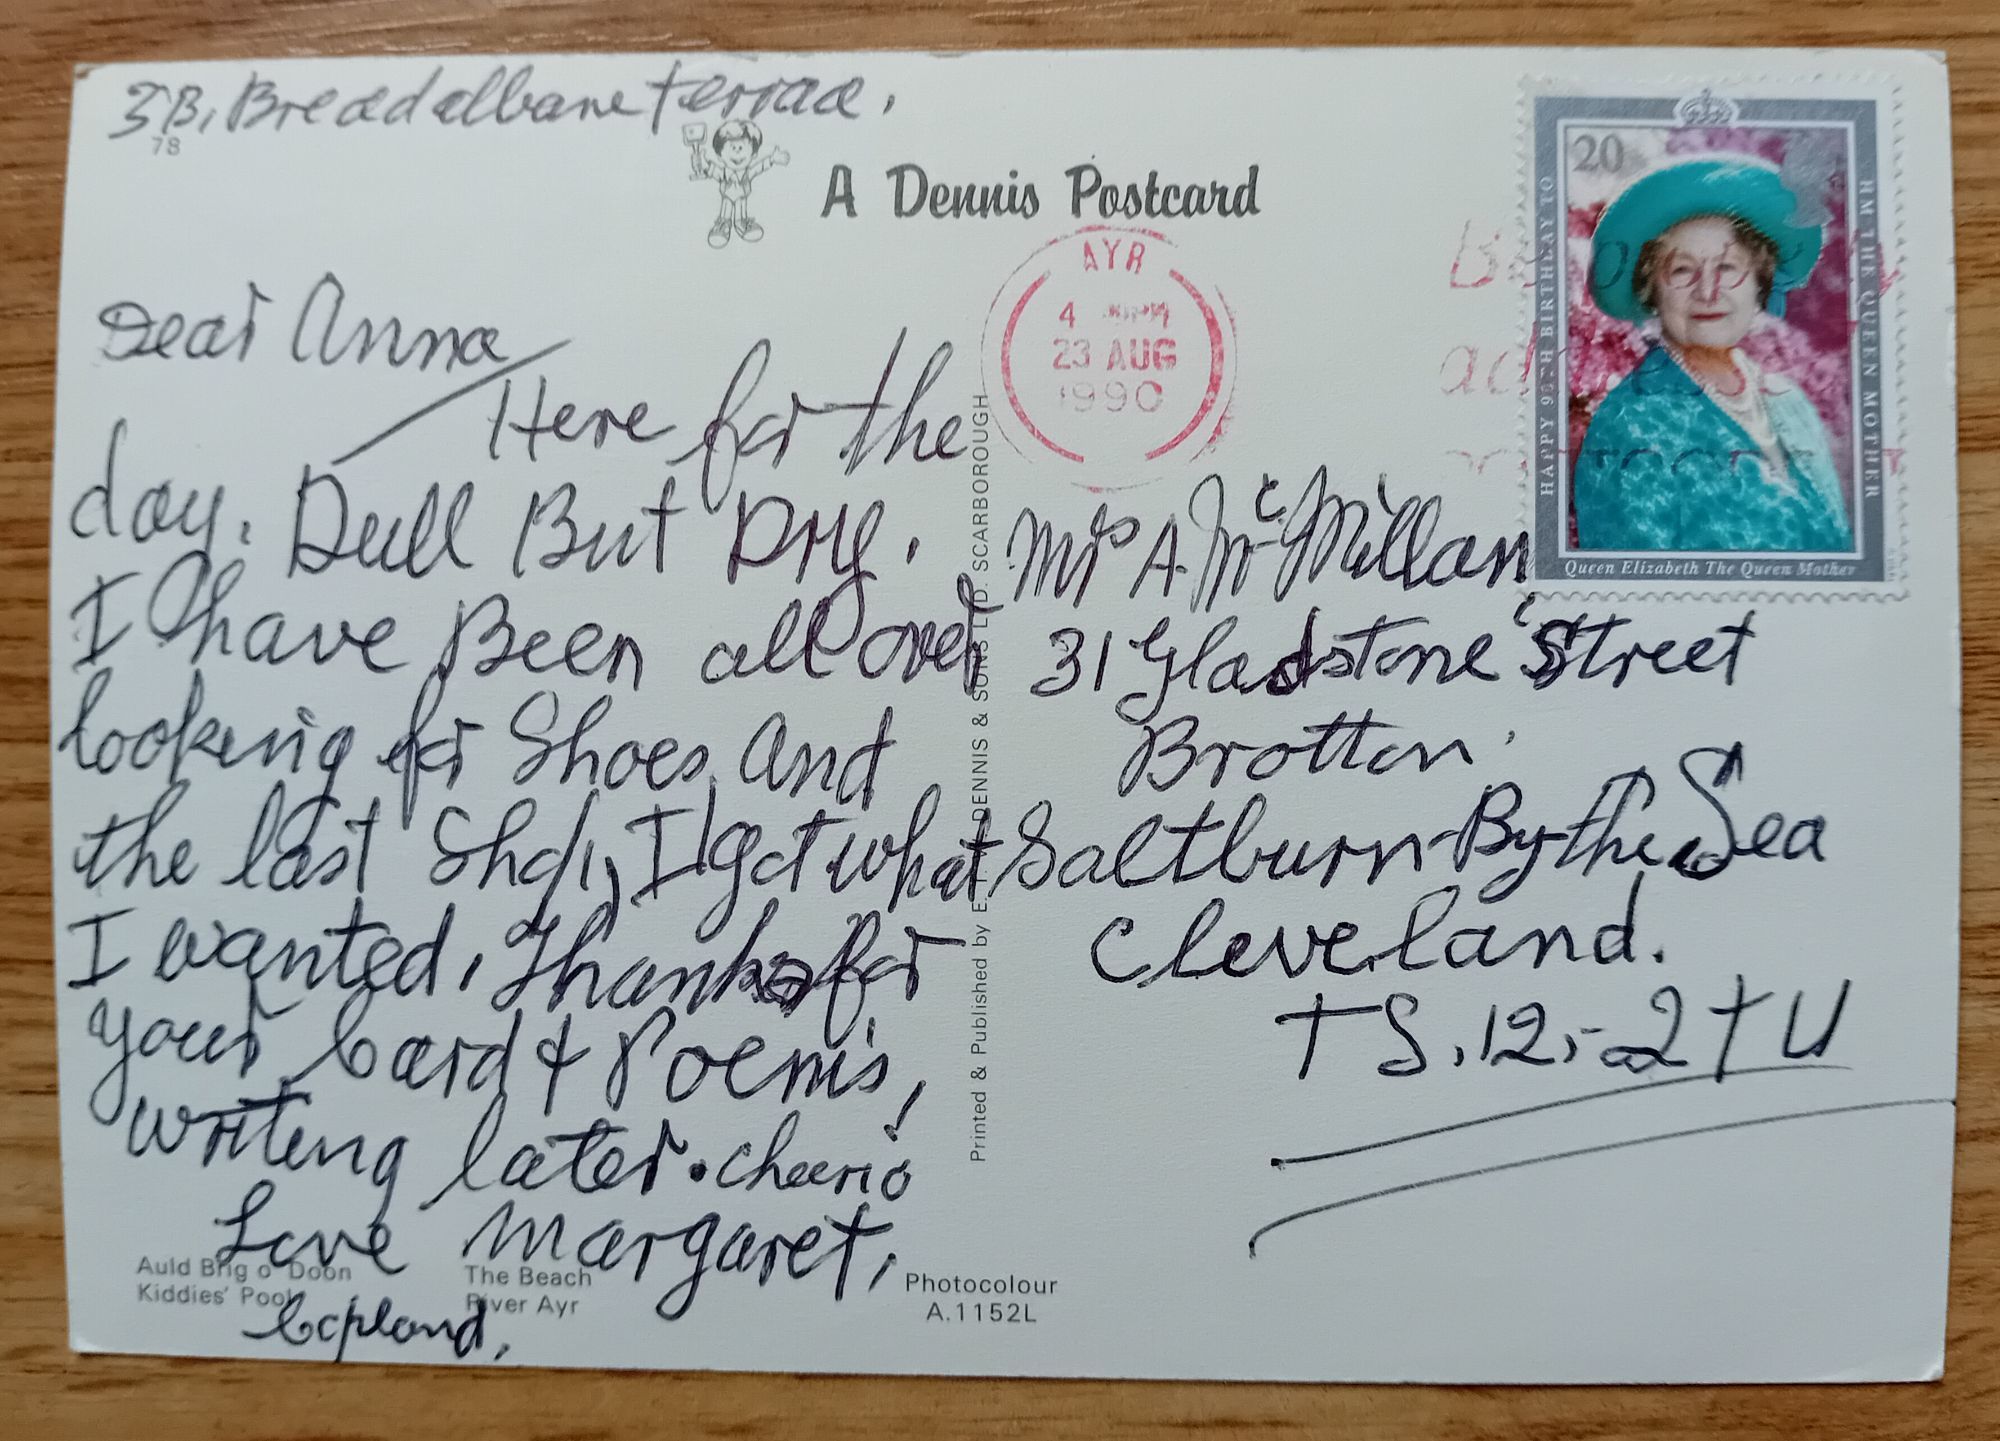 3B, Breadalbane terrace,
78
A Dennis Postcard
20
HAPPY 90TH BIRTHDAY TO
HM THE QUEEN MOTHER
Queen Elizabeth The Queen Mother
AYR
4 PM
23 AUG
1990
Dear Anna
Here for the
day. Dull But Dry.
I have Been all over
looking for Shoes, and
the last Shop, I got what
I wanted, Thanks for
your Card & Poems,
writing later. cheerio
Love Margaret,
Copland,
Mrs A. McMillan
31 Gladstone Street
Brotton.
Saltburn-By-the Sea
Cleveland.
TS.12,-2TU
Printed & Published by E. T. W. DENNIS & SONS LTD. SCARBOROUGH
Auld Brig o' Doon
Kiddies' Pool
The Beach
River Ayr
Photocolour
A.1152L